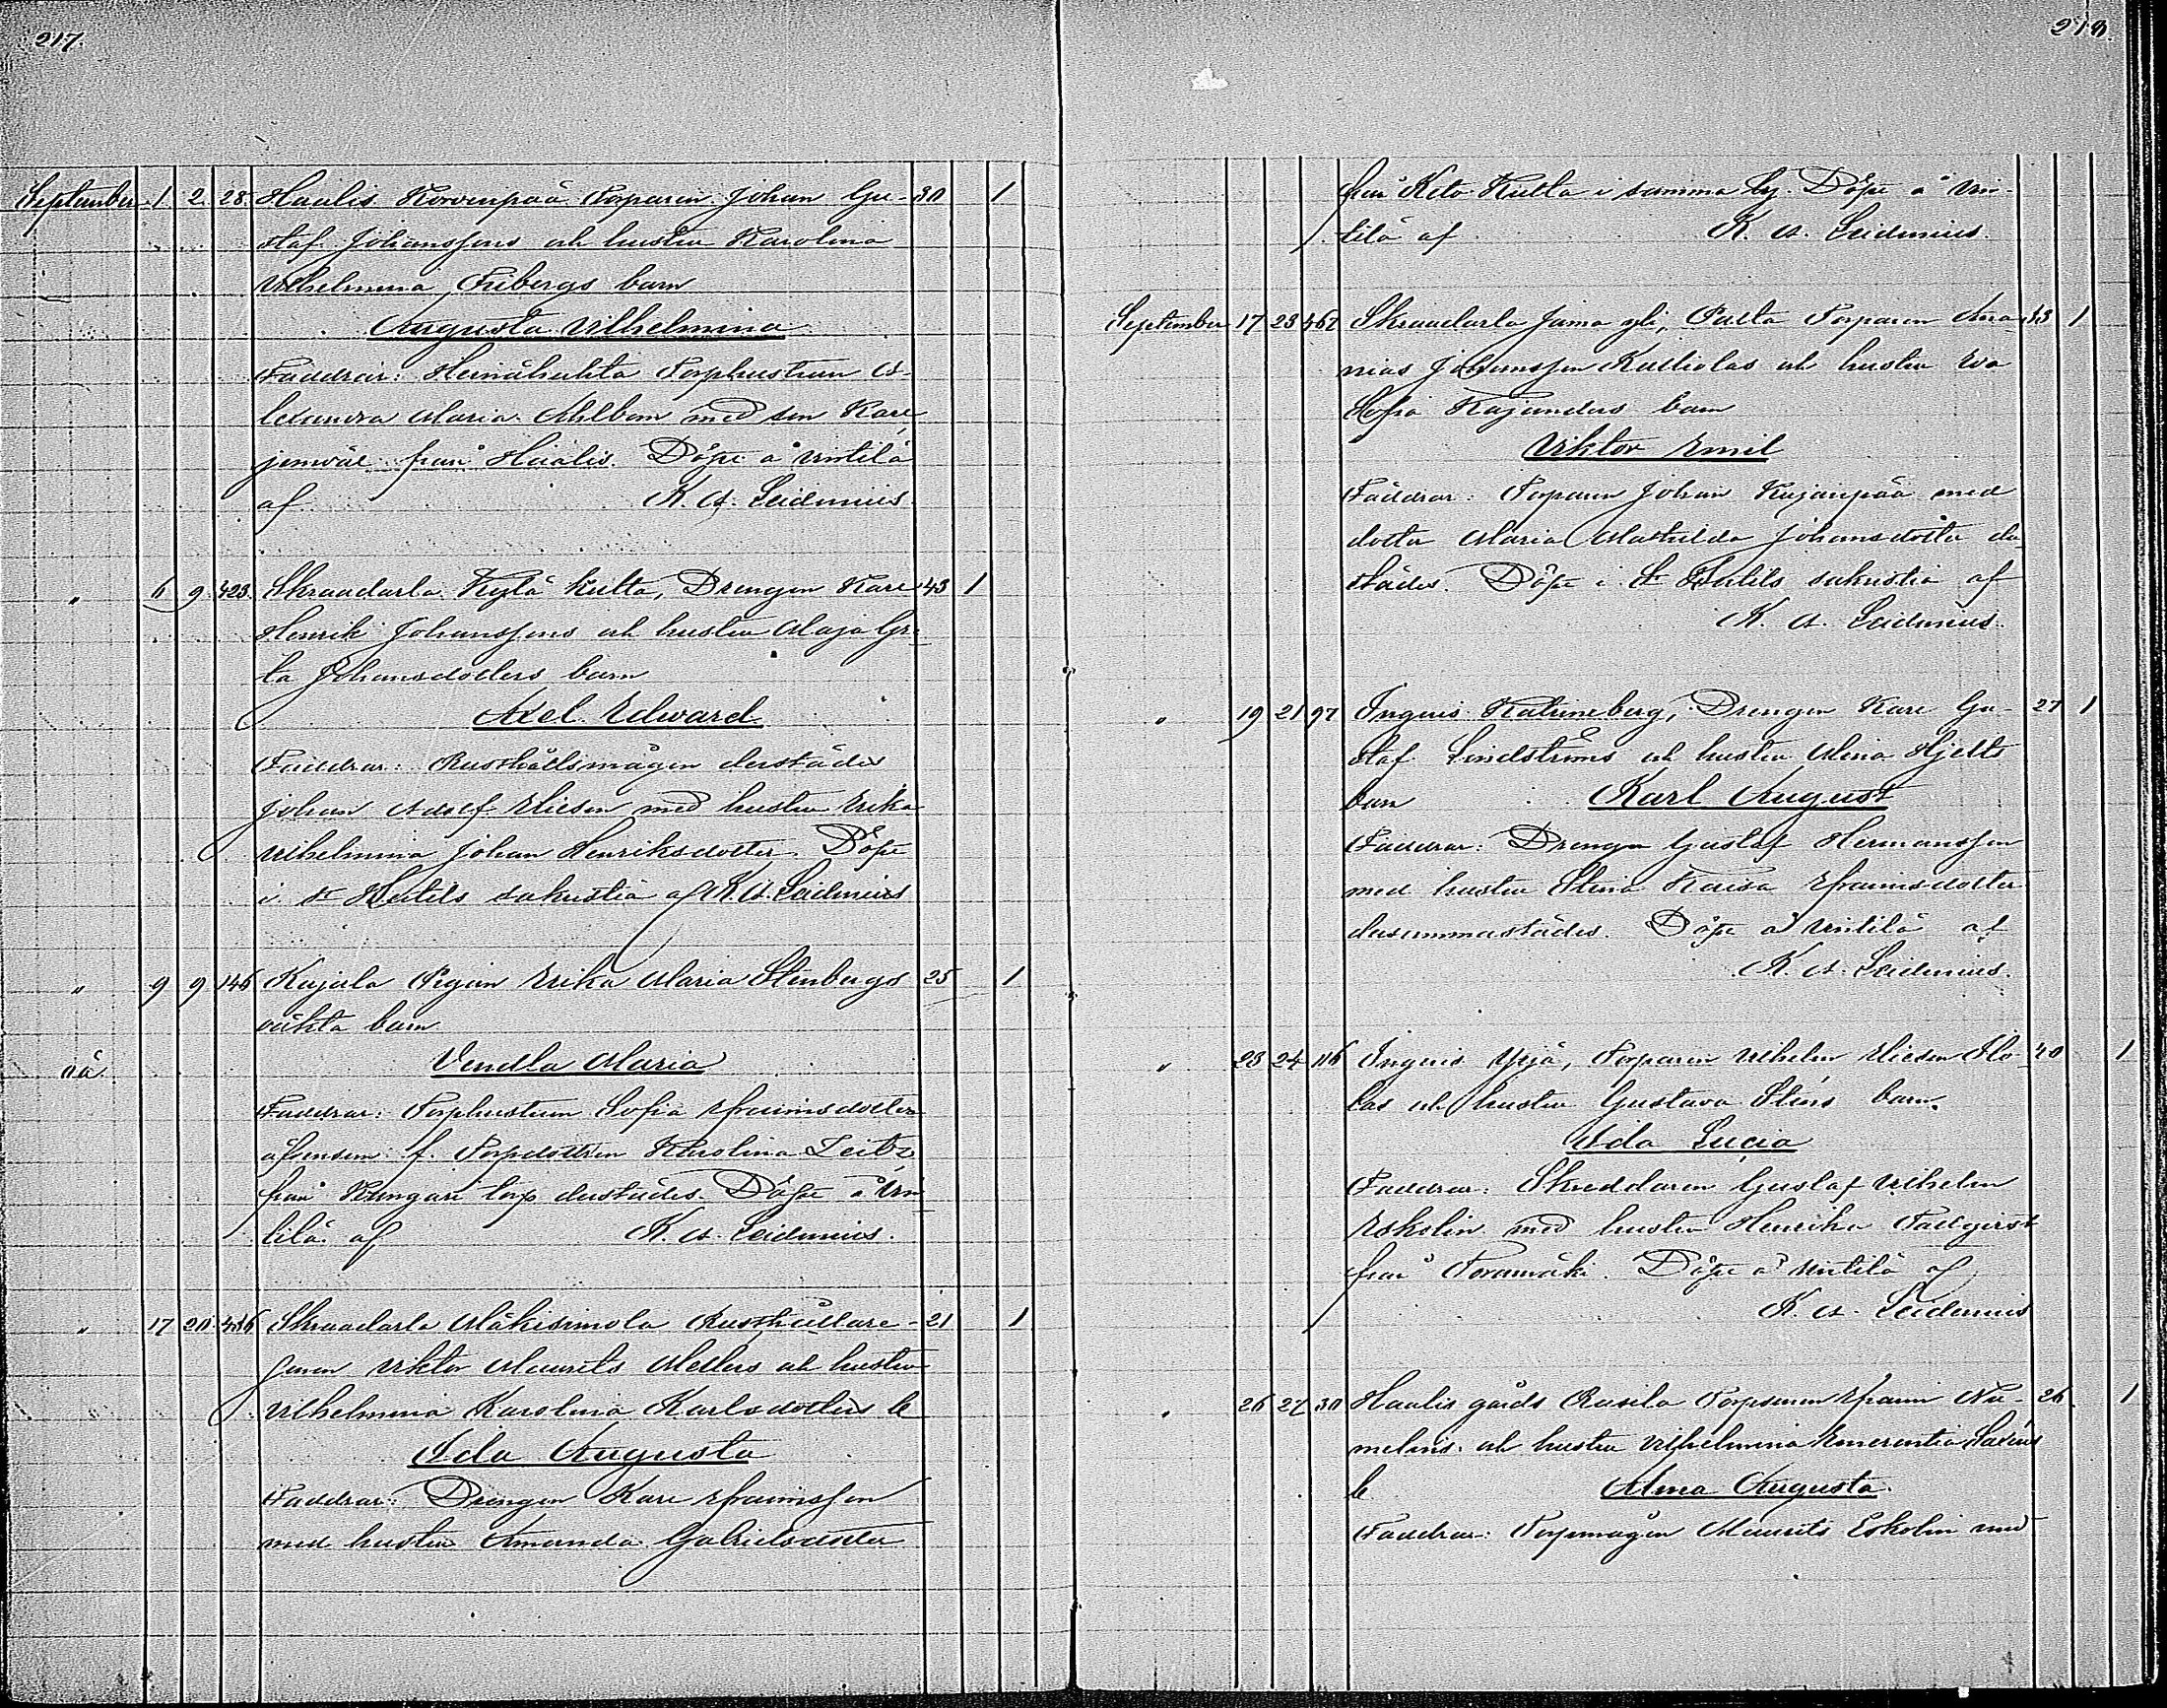 217.
September 1 2 28 Haalis Korvenpää Torparen Johan Gu- 30 1
staf Johanssons och hustru Karolina
Vilhelmina Fribergs barn
Augusta Vilhelmina
Faddrar: Heinähuhta Torphustrun A-
lexandra Maria Ahlbom med son Karl
jemväl från Haalis. Döpt å Untilä
af K. A. Leidenius.
" 6 9 423 Skraadarla Kylä Kulta, Drengen Karl 43 1
Henrik Johanssons och hustru Maja Gre-
ta Johansdotters barn
Axel Edward
Faddrar: Rusthållsmågen derstädes
Johan Adolf Eliesen med hustru Erika
Vilhelmina Johan Henriksdotter. Döpt
i St Hutils sakristia af K. A. Leidenius
" 9 9 146 Kujala Pigan Erika Maria Stenbergs 25 1
oäkta barn
oä. Vendla Maria
Faddrar: Torphustrun Sofia Efraimsdotter
äfvensom f. Torpdottren Karolina Zeitz
från Kungari torp derstädes. Döpt å Un-
tilä af K. A. Leidenius.
" 17 20 436 Skraadarla Mäkisimola Rusthållare- 21 1
sonen Viktor Maurits Mellers och hustru
Vilhelmina Karolina Karlsdotters b
Ida Augusta
Faddrar: Drengen Karl Efraimsson
med hustru Amanda Gabrielsdotter
218.
från Keto Kulta i samma by. Döpt å Un-
tilä af K. A. Leidenius.
September 17 23 467 Skraadarla Jama yli, Torparen Ana- 33 1
nias Johansson Kulliolas och hustru Eva
Sofia Kajanders barn
Viktor Emil
Faddrar: Torparen Johan Kujanpää med
dotter Maria Mathilda Johansdotter der-
städes. Döpt i St Hutils sakristia af
K. A. Leidenius.
" 19 21 97 Inguis Katrineberg, Drengen Karl Gu- 27 1
staf Lindströms och hustru Mina Hjelts
barn Karl August
Faddrar: Drengen Gustaf Hermansson
med hustru Stina Kaisa Efraimsdotter
dersammastädes. Döpt å Untilä af
K. A. Leidenius.
" 23 24 116 Inguis Ypjä, Torparen Vilhelm Eliesen Ilo- 40 1
las och hustru Gustava Sténs barn
Ida Lucia
Faddrar: Skreddaren Gustaf Vilhelm
Eskolin med hustru Henrika
från Toramäki. Döpt å Untilä af
K. A. Leidenius
" 26 27 30 Haalis gårds Rasila Torpsonen Efraim Nu- 26 1
melins och hustru Vilhelmina Emerentia
b Alma Augusta.
Faddrar: Torpmågen Maurits Eskolin med